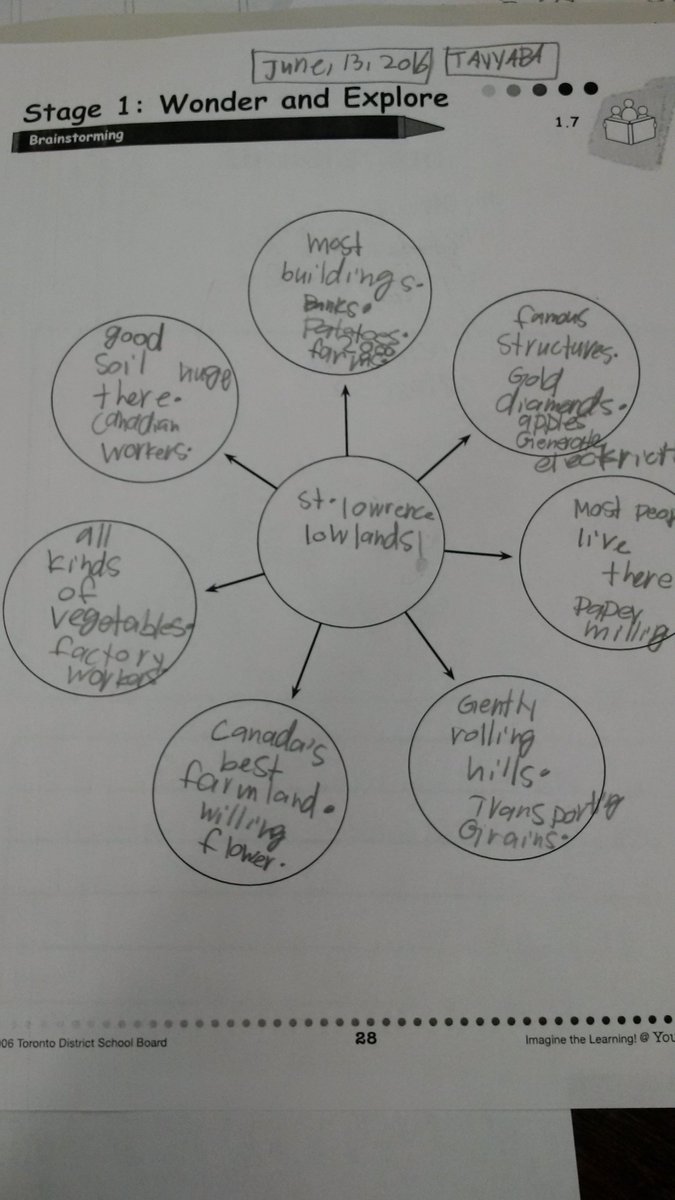 June, 13, 2016
TAYYABA
Stage 1: Wonder and Explore
Brainstorming
1.7
most
buildings.
Banks.
Potatoes.
famous
structures.
Gold
diamonds.
apples
Generate
good
soil huge
there.
Canadian
workers.
St. lowrence
lowlands!
Most peop
live
there
paper
milling
all
kinds
of
vegetables.
factory
workers.
Gently
rolling
hills.
Transporting
Grains.
Canada's
best
farmland.
willing
flower.
06 Toronto District School Board
28
Imagine the Learning! @ You